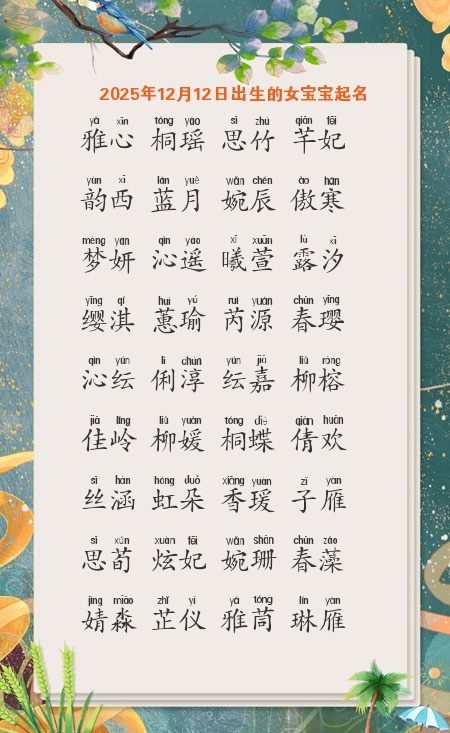 2025年12月12日出生的女宝宝起名
yǎ xīn tóng yáo sī zhú qiān fēi
雅心 桐瑶 思竹 芊妃
yùn xī lán yuè wǎn chén ào hán
韵西 蓝月 婉辰 傲寒
mèng yán qìn yáo xī xuān lù xī
梦妍 沁遥 曦萱 露汐
yīng qí huì yú ruì yuán chūn yīng
缨淇 蕙瑜 芮源 春璎
qìn yún lì chún yún jiā liǔ róng
沁纭 俐淳 纭嘉 柳榕
jiā lǐng liǔ yuàn tóng dié qiàn huān
佳岭 柳媛 桐蝶 倩欢
sī hán hóng duǒ xiāng yuàn zǐ yàn
丝涵 虹朵 香瑗 子雁
sī xún xuàn fēi wǎn shān chūn zǎo
思荀 炫妃 婉珊 春藻
jìng miǎo zhǐ yí yǎ tóng lín yàn
婧淼 芷仪 雅茼 琳雁